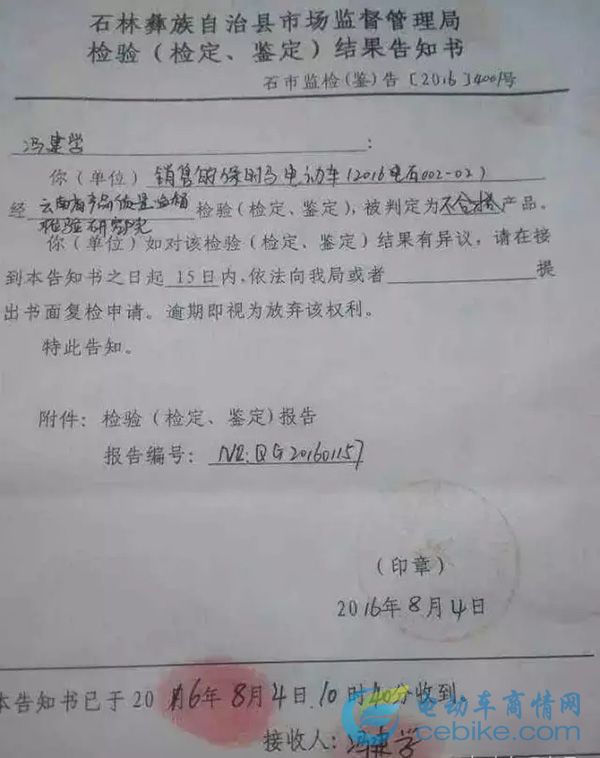 石林彝族自治县市场监督管理局
检验（检定、鉴定）结果告知书
石市监检(鉴)告〔2016〕4001号
冯建学：
你（单位）销售的绿驹电动车(2016电石002-02)
经云南省产品质量监督检验研究院检验(检定、鉴定)，被判定为不合格产品。
你（单位）如对该检验（检定、鉴定）结果有异议，请在接
到本告知书之日起 15日内，依法向我局或者 提
出书面复检申请。逾期即视为放弃该权利。
特此告知。
附件：检验（检定、鉴定)报告
报告编号：NO:QG201601157
（印章）
2016年8月4日
本告知书已于2016年8月4日10时40分收到
接收人：冯建学
电动车商情网
cebike.com